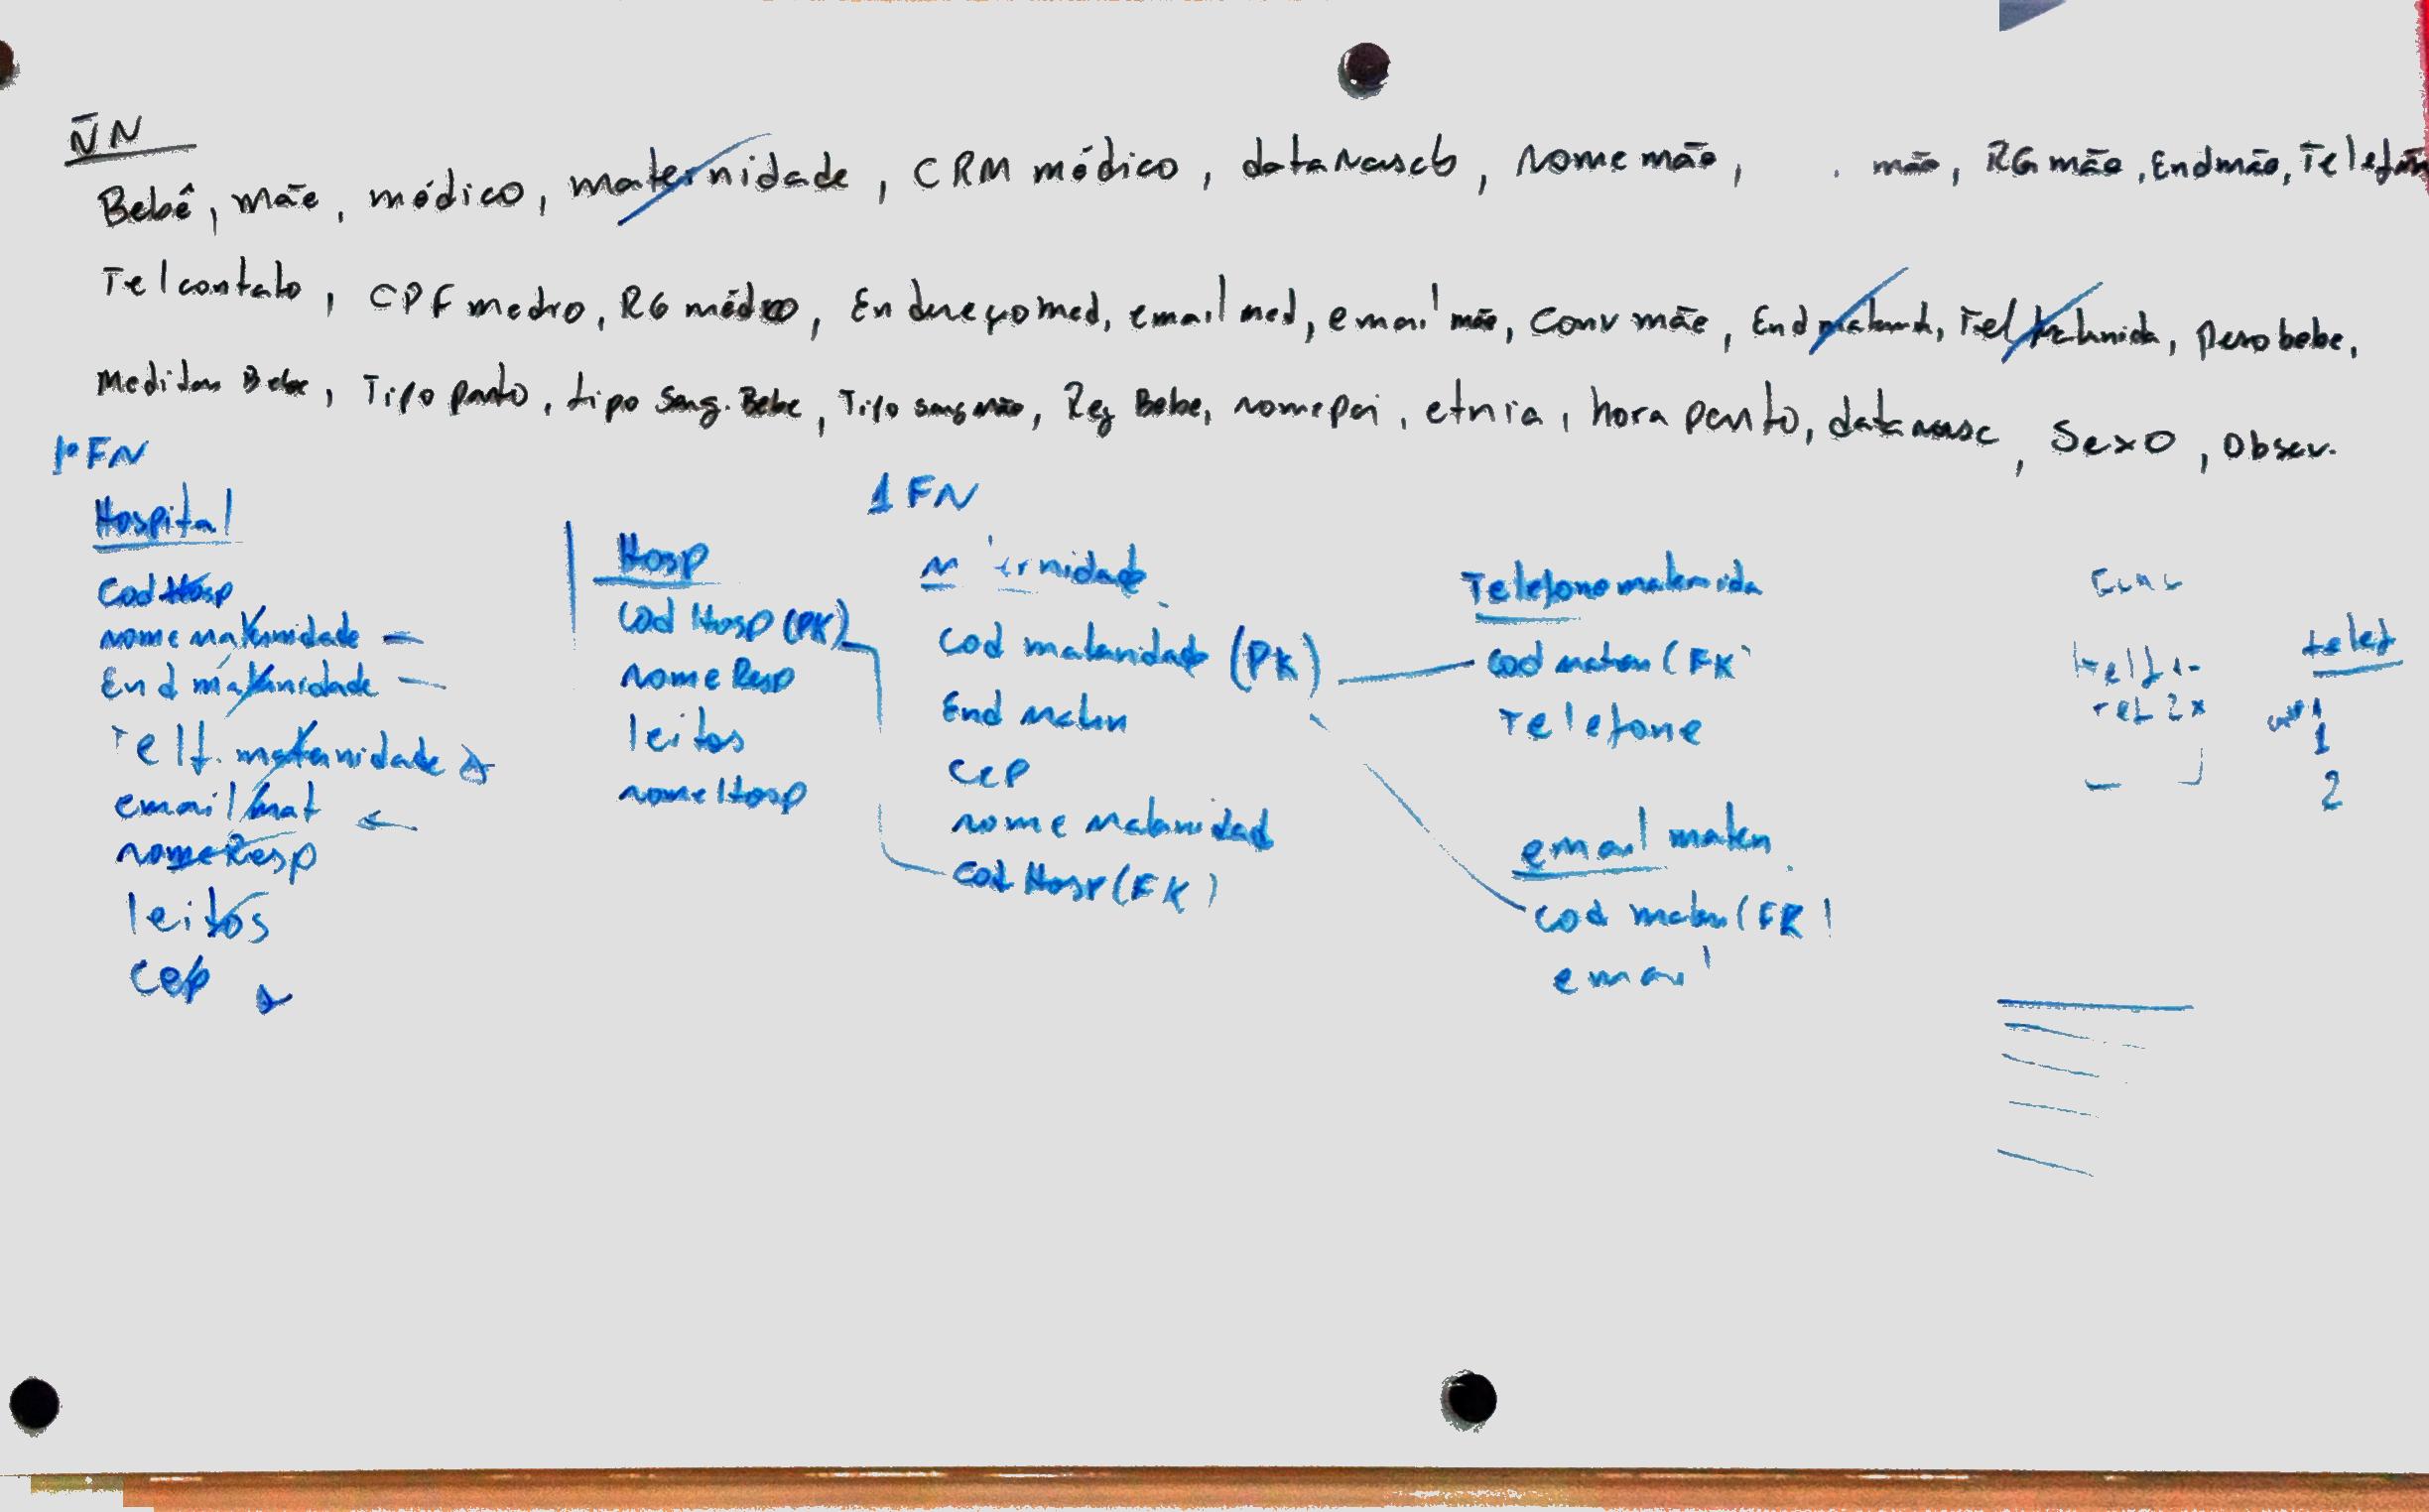 ÑN
Bebê, mãe, médico, maternidade, CRM médico, data nascb, nome mãe, mãe, RG mãe, End mãe, Telefon
Tel contato, CPF medico, RG médico, Endereço med, email med, email mãe, Conv mãe, End, Tel, Peso bebe,
Medidas Bebe, Tipo parto, tipo Sang. Bebe, Tipo sang mãe, Reg Bebe, nome pai, etnia, hora parto, data nasc, Sexo, Obser.
1ª FN
Hospital
Cod Hosp
nome maternidade
End maternidade
Telf. maternidade
email mat
nome Resp
leitos
Cep
Hosp
Cod Hosp (PK)
nome Resp
leitos
nome Hosp
1 FN
Cod maternidade (PK)
End matern
Cep
nome maternidad
Cod Hosp (FK)
Telefone maternida
Cod matern (FK)
Telefone
email matern
cod matern (FK)
email
telef
1
2